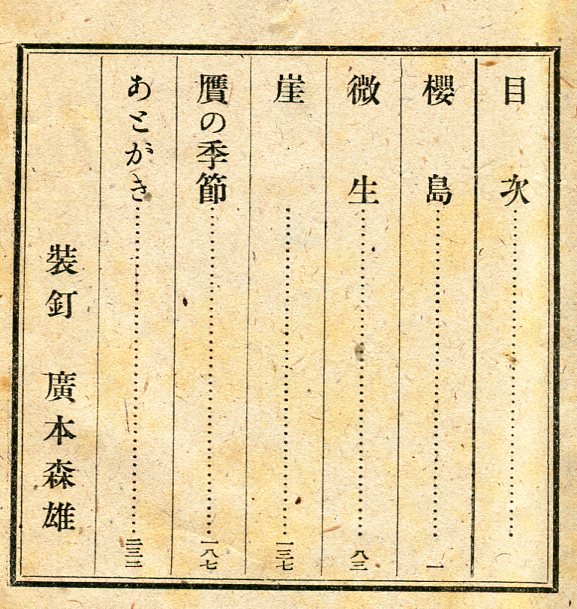 目次
櫻島……一
微生……八三
崖……一三七
贋の季節……一八七
あとがき……二三二
装釘 廣本森雄